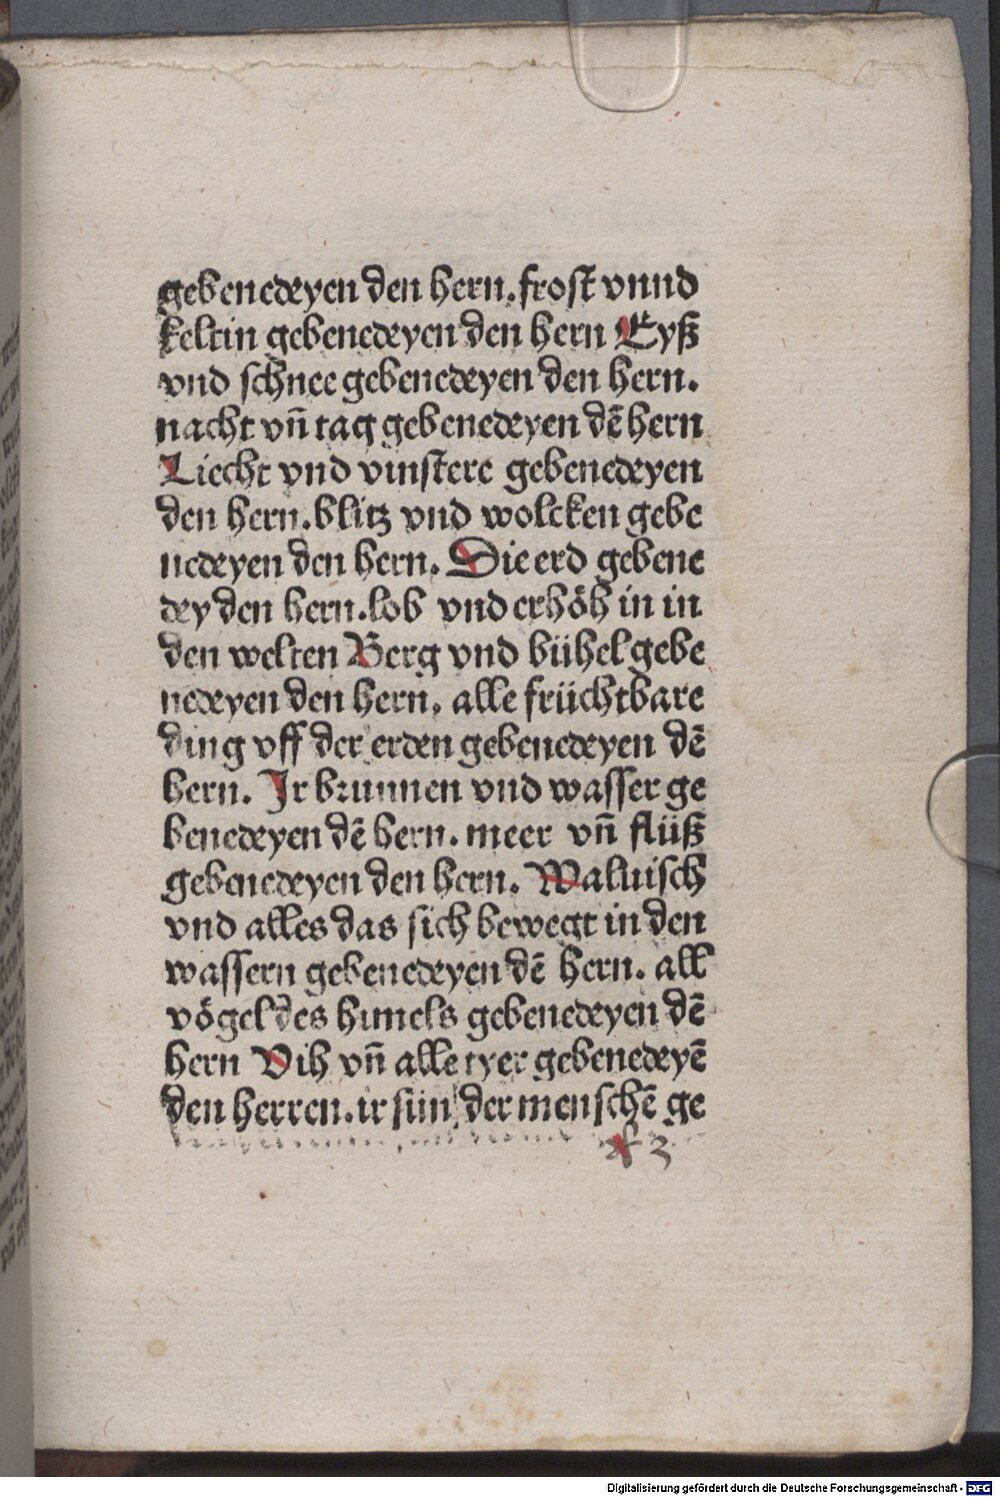 gebenedeyen den hern. frost vnnd
keltin gebenedeyen den hern Eyß
vnd schnee gebenedeyen den hern.
nacht vn̄ tag gebenedeyen dē hern
Liecht vnd vinstere gebenedeyen
den hern. blitz vnd wolcken gebe
nedeyen den hern. Die erd gebene
dey den hern. lob vnd erhöh in in
den welten Berg vnd bühel gebe
nedeyen den hern. alle früchtbare
ding vff der erden gebenedeyen dē
hern. Ir brunnen vnd wasser ge
benedeyen dē hern. meer vn̄ flüß
gebenedeyen den hern. Waluisch
vnd alles das sich bewegt in den
wassern gebenedeyen dē hern. all
vögel des himels gebenedeyen dē
hern Vih vn̄ alle tyer gebenedeyē
den herren. ir sün der menschē ge
Digitalisierung gefördert durch die Deutsche Forschungsgemeinschaft - DFG